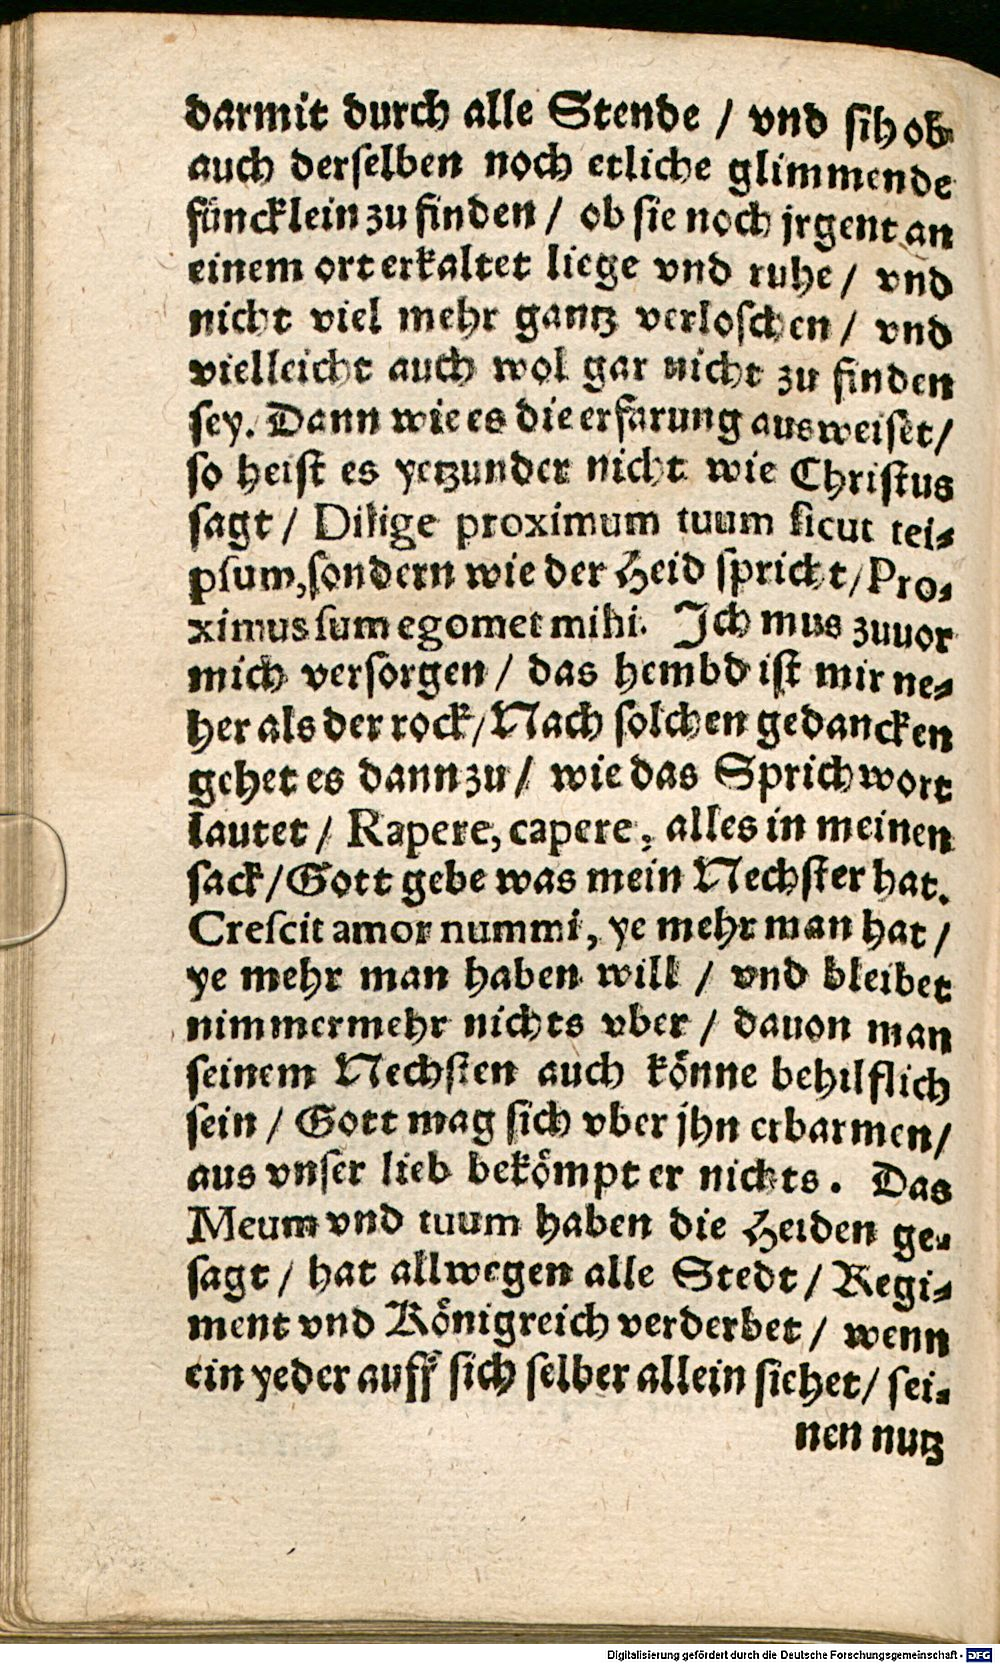 darmit durch alle Stende / vnd sih ob
auch derselben noch etliche glimmende
füncklein zu finden / ob sie noch jrgent an
einem ort erkaltet liege vnd ruhe / vnd
nicht viel mehr gantz verloschen / vnd
vielleicht auch wol gar nicht zu finden
sey. Dann wie es die erfarung ausweiset /
so heist es yetzunder nicht wie Christus
sagt / Dilige proximum tuum sicut tei-
psum, sondern wie der Heid spricht / Pro-
ximus sum egomet mihi. Ich mus zuuor
mich versorgen / das hembd ist mir ne-
her als der rock / Nach solchen gedancken
gehet es dann zu / wie das Sprichwort
lautet / Rapere, capere, alles in meinen
sack / Gott gebe was mein Nechster hat.
Crescit amor nummi, ye mehr man hat /
ye mehr man haben will / vnd bleibet
nimmermehr nichts vber / dauon man
seinem Nechsten auch könne behilflich
sein / Gott mag sich vber jhn erbarmen /
aus vnser lieb bekömpt er nichts. Das
Meum vnd tuum haben die Heiden ge-
sagt / hat allwegen alle Stedt / Regi-
ment vnd Königreich verderbet / wenn
ein yeder auff sich selber allein siehet / sei-
nen nutz
Digitalisierung gefördert durch die Deutsche Forschungsgemeinschaft - DFG